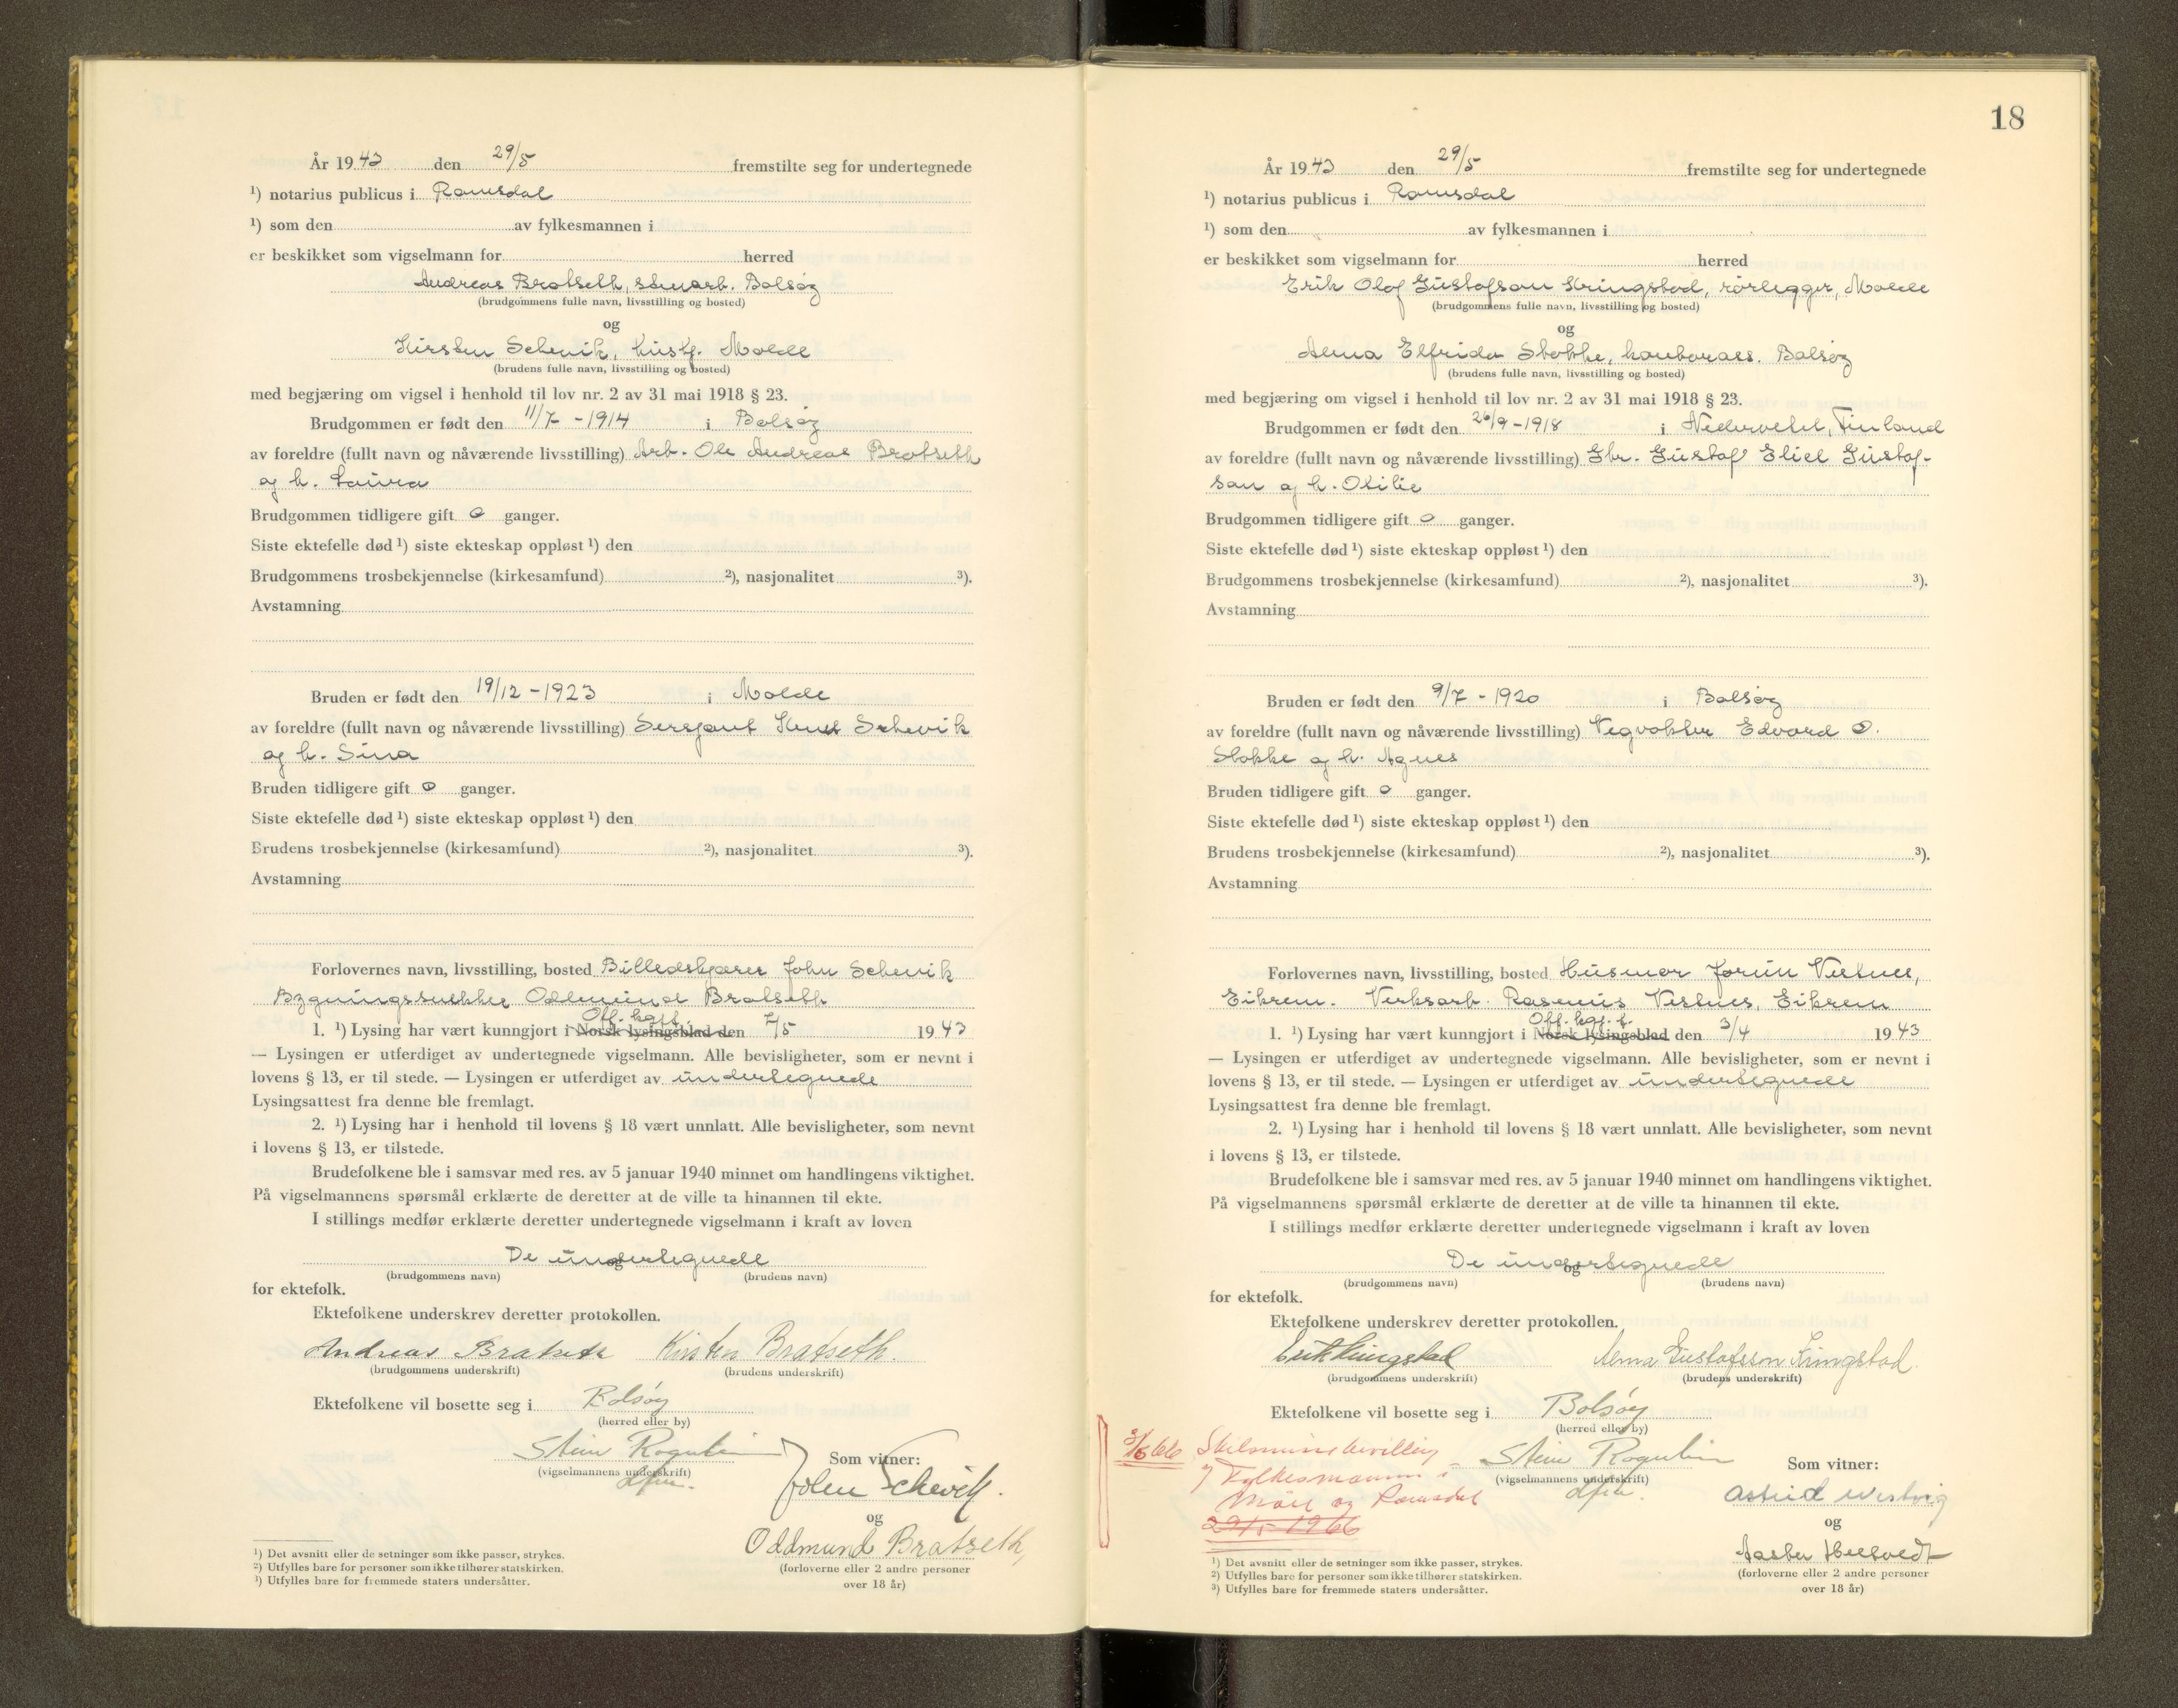 År 1943 den 29/5 fremstilte seg for undertegnede
¹) notarius publicus i Romsdal
¹) som den av fylkesmannen i
er beskikket som vigselmann for herred
Andreas Bratseth, stenarb. Bolsøy
(brudgommens fulle navn, livsstilling og bosted)
og
Kirsten Schevik, hush. Molde
(brudens fulle navn, livsstilling og bosted)
med begjæring om vigsel i henhold til lov nr. 2 av 31 mai 1918 § 23.
Brudgommen er født den 11/7 - 1914 i Bolsøy
av foreldre (fullt navn og nåværende livsstilling) Arb. Ole Andreas Bratseth
og h. Laura
Brudgommen tidligere gift 0 ganger.
Siste ektefelle død ¹) siste ekteskap oppløst ¹) den
Brudgommens trosbekjennelse (kirkesamfund) ²), nasjonalitet ³).
Avstamning
Bruden er født den 19/12 - 1923 i Molde
av foreldre (fullt navn og nåværende livsstilling) Sersjant Knut Schevik
og h. Sina
Bruden tidligere gift 0 ganger.
Siste ektefelle død ¹) siste ekteskap oppløst ¹) den
Brudens trosbekjennelse (kirkesamfund) ²), nasjonalitet ³).
Avstamning
Forlovernes navn, livsstilling, bosted Billedskjærer John Schevik
Bygningssnekker Oddmund Bratseth
Off. kgjf.
1. ¹) Lysing har vært kunngjort i Norsk lysingsblad den 7/5 1943
— Lysingen er utferdiget av undertegnede vigselmann. Alle bevisligheter, som er nevnt i
lovens § 13, er til stede. — Lysingen er utferdiget av undertegnede
Lysingsattest fra denne ble fremlagt.
2. ¹) Lysing har i henhold til lovens § 18 vært unnlatt. Alle bevisligheter, som nevnt
i lovens § 13, er tilstede.
Brudefolkene ble i samsvar med res. av 5 januar 1940 minnet om handlingens viktighet.
På vigselmannens spørsmål erklærte de deretter at de ville ta hinannen til ekte.
I stillings medfør erklærte deretter undertegnede vigselmann i kraft av loven
De undertegnede
og
(brudgommens navn) (brudens navn)
for ektefolk.
Ektefolkene underskrev deretter protokollen.
Andreas Bratseth Kirsten Bratseth.
(brudgommens underskrift) (brudens underskrift)
Ektefolkene vil bosette seg i Bolsøy
(herred eller by)
Stein Rognlien
(vigselmannens underskrift)
dfm.
Som vitner:
John Schevik.
og
Oddmund Bratseth,
(forloverne eller 2 andre personer
over 18 år)
¹) Det avsnitt eller de setninger som ikke passer, strykes.
²) Utfylles bare for personer som ikke tilhører statskirken.
³) Utfylles bare for fremmede staters undersåtter.
18
År 1943 den 29/5 fremstilte seg for undertegnede
¹) notarius publicus i Romsdal
¹) som den av fylkesmannen i
er beskikket som vigselmann for herred
Erik Olof Gustafson Kringstad, rørlegger, Molde
(brudgommens fulle navn, livsstilling og bosted)
og
Alma Elfrida Stokke, kontorass. Bolsøy
(brudens fulle navn, livsstilling og bosted)
med begjæring om vigsel i henhold til lov nr. 2 av 31 mai 1918 § 23.
Brudgommen er født den 26/9 - 1918 i Nedervetil, Finland
av foreldre (fullt navn og nåværende livsstilling) Gbr. Gustaf Eliel Gustaf-
son og h. Otilie
Brudgommen tidligere gift 0 ganger.
Siste ektefelle død ¹) siste ekteskap oppløst ¹) den
Brudgommens trosbekjennelse (kirkesamfund) ²), nasjonalitet ³).
Avstamning
Bruden er født den 9/7 - 1920 i Bolsøy
av foreldre (fullt navn og nåværende livsstilling) Vegvokter Edvard O.
Stokke og h. Agnes
Bruden tidligere gift 0 ganger.
Siste ektefelle død ¹) siste ekteskap oppløst ¹) den
Brudens trosbekjennelse (kirkesamfund) ²), nasjonalitet ³).
Avstamning
Forlovernes navn, livsstilling, bosted Husmor Jorun Vestnes,
Eikrem. Verksarb. Rasmus Vestnes, Eikrem
Off. kgj. f.
1. ¹) Lysing har vært kunngjort i Norsk lysingsblad den 3/4 1943
— Lysingen er utferdiget av undertegnede vigselmann. Alle bevisligheter, som er nevnt i
lovens § 13, er til stede. — Lysingen er utferdiget av undertegnede
Lysingsattest fra denne ble fremlagt.
2. ¹) Lysing har i henhold til lovens § 18 vært unnlatt. Alle bevisligheter, som nevnt
i lovens § 13, er tilstede.
Brudefolkene ble i samsvar med res. av 5 januar 1940 minnet om handlingens viktighet.
På vigselmannens spørsmål erklærte de deretter at de ville ta hinannen til ekte.
I stillings medfør erklærte deretter undertegnede vigselmann i kraft av loven
De undertegnede
og
(brudgommens navn) (brudens navn)
for ektefolk.
Ektefolkene underskrev deretter protokollen.
Erik Kringstad Alma Gustafsson Kringstad.
(brudgommens underskrift) (brudens underskrift)
Ektefolkene vil bosette seg i Bolsøy
(herred eller by)
3/6 66 Skilsmissebevilling
Fylkesmannen i
Møre og Romsdal
29/5 1966
Stein Rognlien
(vigselmannens underskrift)
dfm.
Som vitner:
Astrid
og
(forloverne eller 2 andre personer
over 18 år)
¹) Det avsnitt eller de setninger som ikke passer, strykes.
²) Utfylles bare for personer som ikke tilhører statskirken.
³) Utfylles bare for fremmede staters undersåtter.